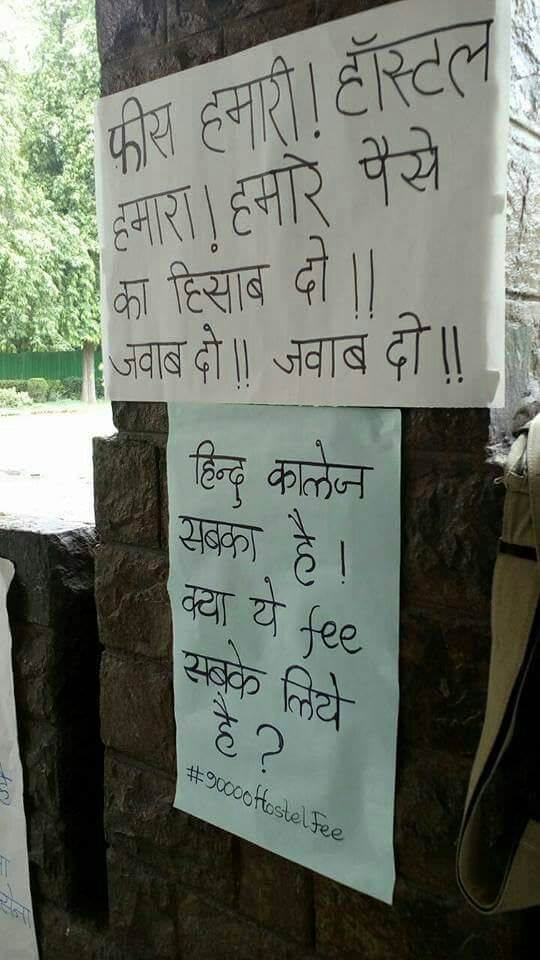 फीस हमारी! हॉस्टल
हमारा! हमारे पैसे
का हिसाब दो!!
जवाब दो!! जवाब दो!!
हिन्दु कालेज
सबका है।
क्या ये fee
सबके लिये
है?
#90000HostelFee
है